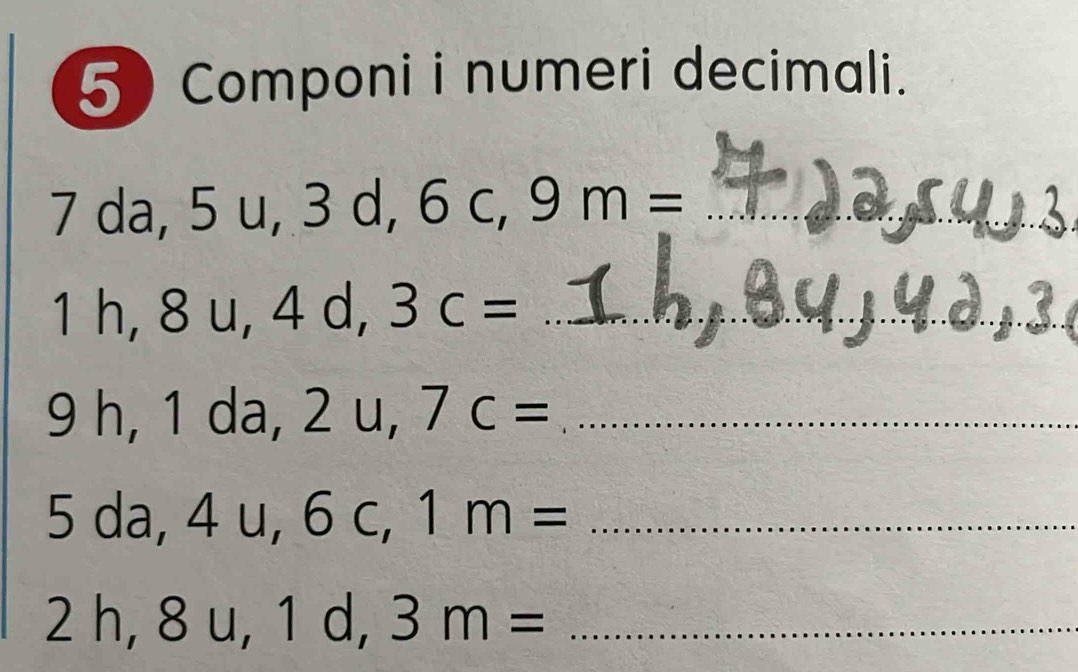 5 Componi i numeri decimali.
7 da, 5 u, 3 d, 6 c, 9 m = 7 da, 5u, 3
1 h, 8 u, 4 d, 3 c = 1 h, 8u, 4d, 3c
9 h, 1 da, 2 u, 7 c =
5 da, 4 u, 6 c, 1 m =
2 h, 8 u, 1 d, 3 m =